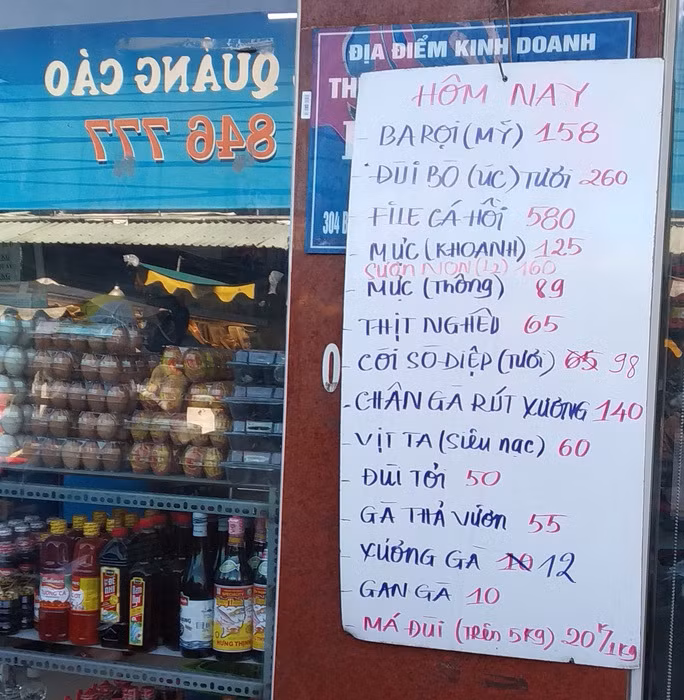 QUẢNG CÁO
846 777
ĐỊA ĐIỂM KINH DOANH
TH
304 B
HÔM NAY
- BA RỌI (MỸ) 158
- ĐÙI BÒ (ÚC) TƯƠI 260
- FILE CÁ HỒI 580
- MỰC (KHOANH) 125
SƯỜN NON (L2) 160
- MỰC (Thông) 89
- THỊT NGHÊU 65
- CỒI SÒ ĐIỆP (TƯƠI) 65 98
- CHÂN GÀ RÚT XƯƠNG 140
- VỊT TA (Siêu nạc) 60
- ĐÙI TỎI 50
- GÀ THẢ VƯỜN 55
- XƯƠNG GÀ 10 12
- GAN GÀ 10
- MÁ ĐÙI (Trên 5kg) 20k/1kg
HƯNG THỊNH